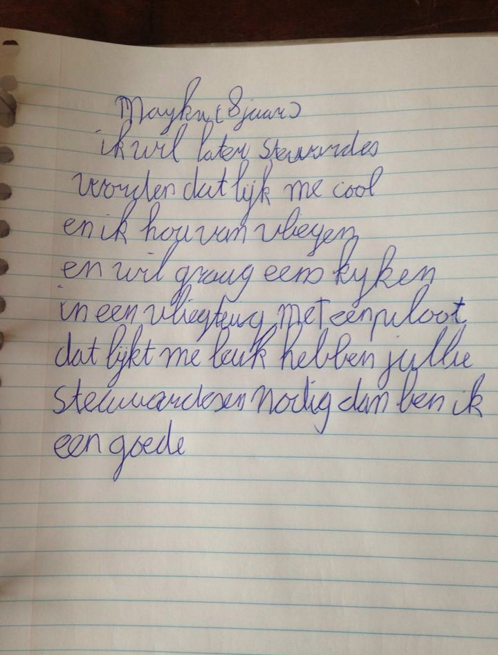 Mayka (8 jaar)
ik wil later stewardes
worden dat lijk me cool
en ik hou van vliegen
en wil graag eens kijken
in een vliegtuig met een piloot
dat lijkt me leuk hebben jullie
stewardesen nodig dan ben ik
een goede